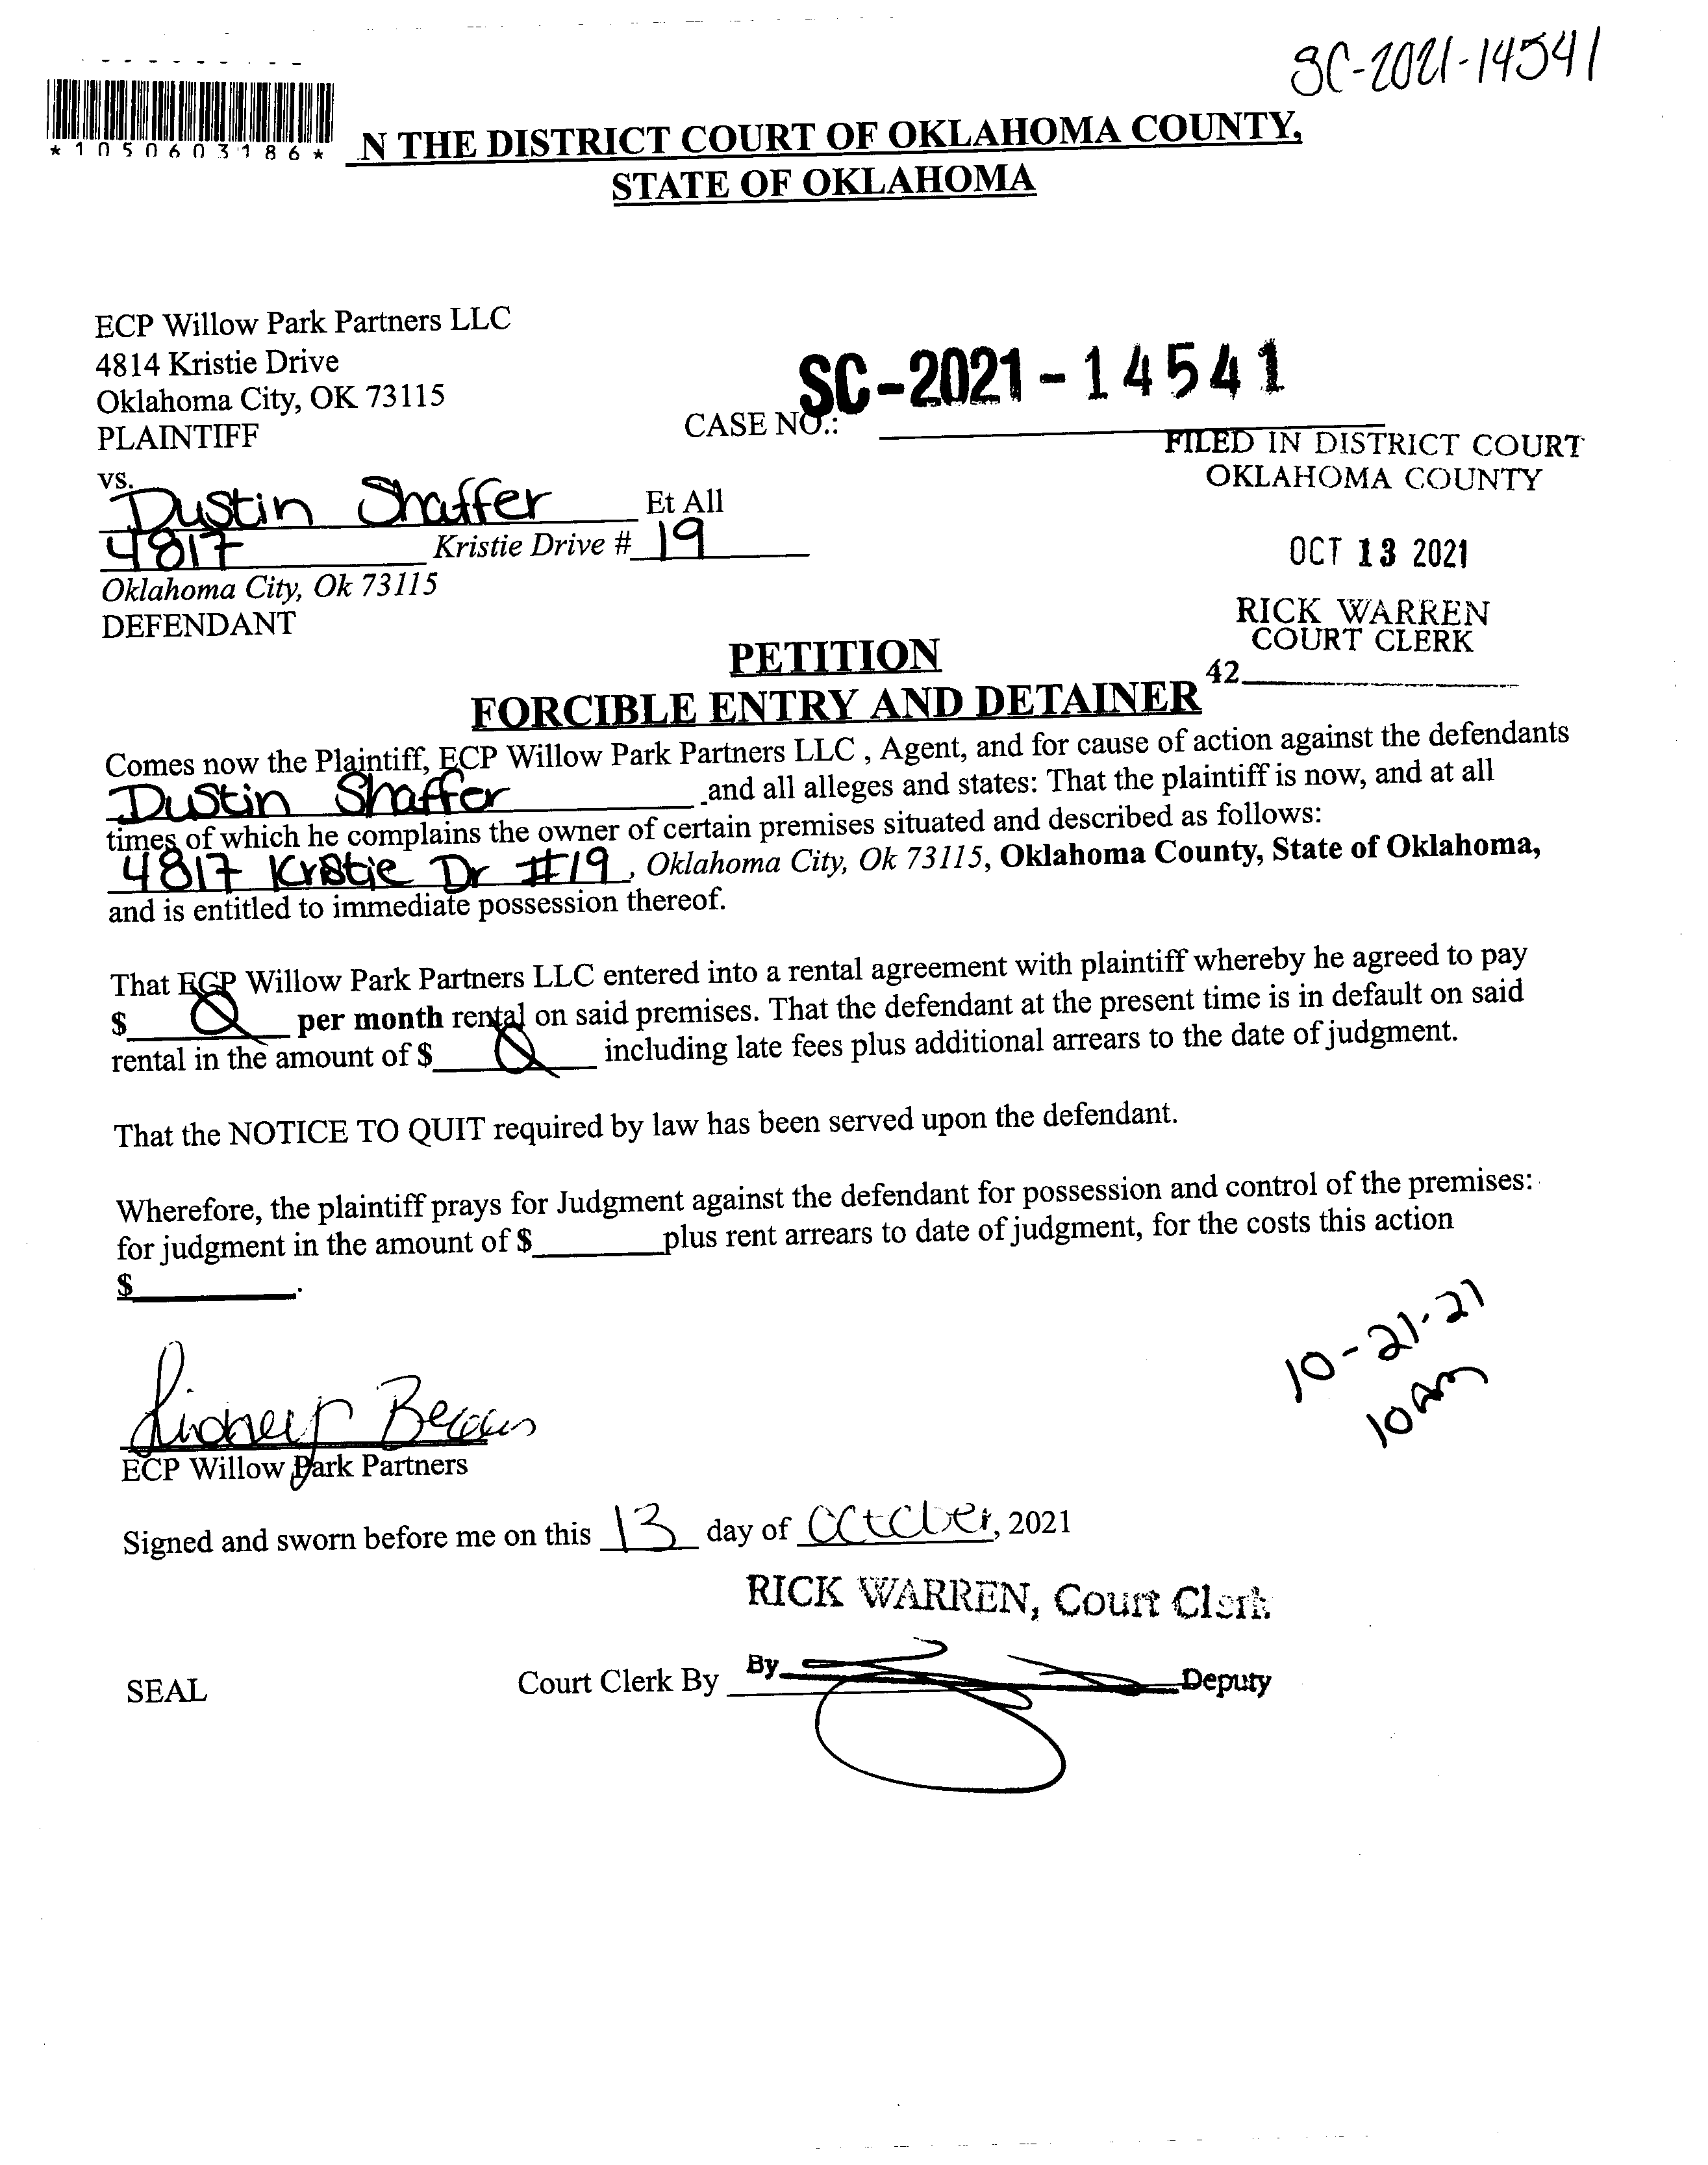 SC-2021-14541
*1050603186*
N THE DISTRICT COURT OF OKLAHOMA COUNTY,
STATE OF OKLAHOMA
ECP Willow Park Partners LLC
4814 Kristie Drive
Oklahoma City, OK 73115
PLAINTIFF
CASE NO.: SC-2021-14541
FILED IN DISTRICT COURT
OKLAHOMA COUNTY
vs.
Dustin Shaffer Et All
4817 Kristie Drive # 19
Oklahoma City, Ok 73115
DEFENDANT
OCT 13 2021
RICK WARREN
COURT CLERK
42
PETITION
FORCIBLE ENTRY AND DETAINER
Comes now the Plaintiff, ECP Willow Park Partners LLC , Agent, and for cause of action against the defendants
Dustin Shaffer and all alleges and states: That the plaintiff is now, and at all
times of which he complains the owner of certain premises situated and described as follows:
4817 Kristie Dr #19, Oklahoma City, Ok 73115, Oklahoma County, State of Oklahoma,
and is entitled to immediate possession thereof.
That ECP Willow Park Partners LLC entered into a rental agreement with plaintiff whereby he agreed to pay
$ 0 per month rental on said premises. That the defendant at the present time is in default on said
rental in the amount of $ 0 including late fees plus additional arrears to the date of judgment.
That the NOTICE TO QUIT required by law has been served upon the defendant.
Wherefore, the plaintiff prays for Judgment against the defendant for possession and control of the premises:
for judgment in the amount of $ plus rent arrears to date of judgment, for the costs this action
$ .
10-21-21
10am
ECP Willow Park Partners
Signed and sworn before me on this 13 day of October, 2021
RICK WARREN, Court Clerk
SEAL
Court Clerk By By Deputy